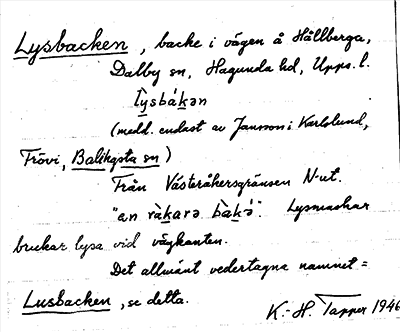 Lysbacken, backe i vägen å Hällberga,
Dalby sn, Hagunda hd, Upps. l.
lỳsbákən
(medd. endast av Jansson i Karlslund,
Frövi, Balingsta sn)
Från Västeråkersgränsen N-ut.
"an ràkarə bàkə". Lysmaskar
brukar lysa vid vägkanten.
Det allmänt vedertagna namnet =
Lusbacken, se detta.
K.-H. Tapper 1946